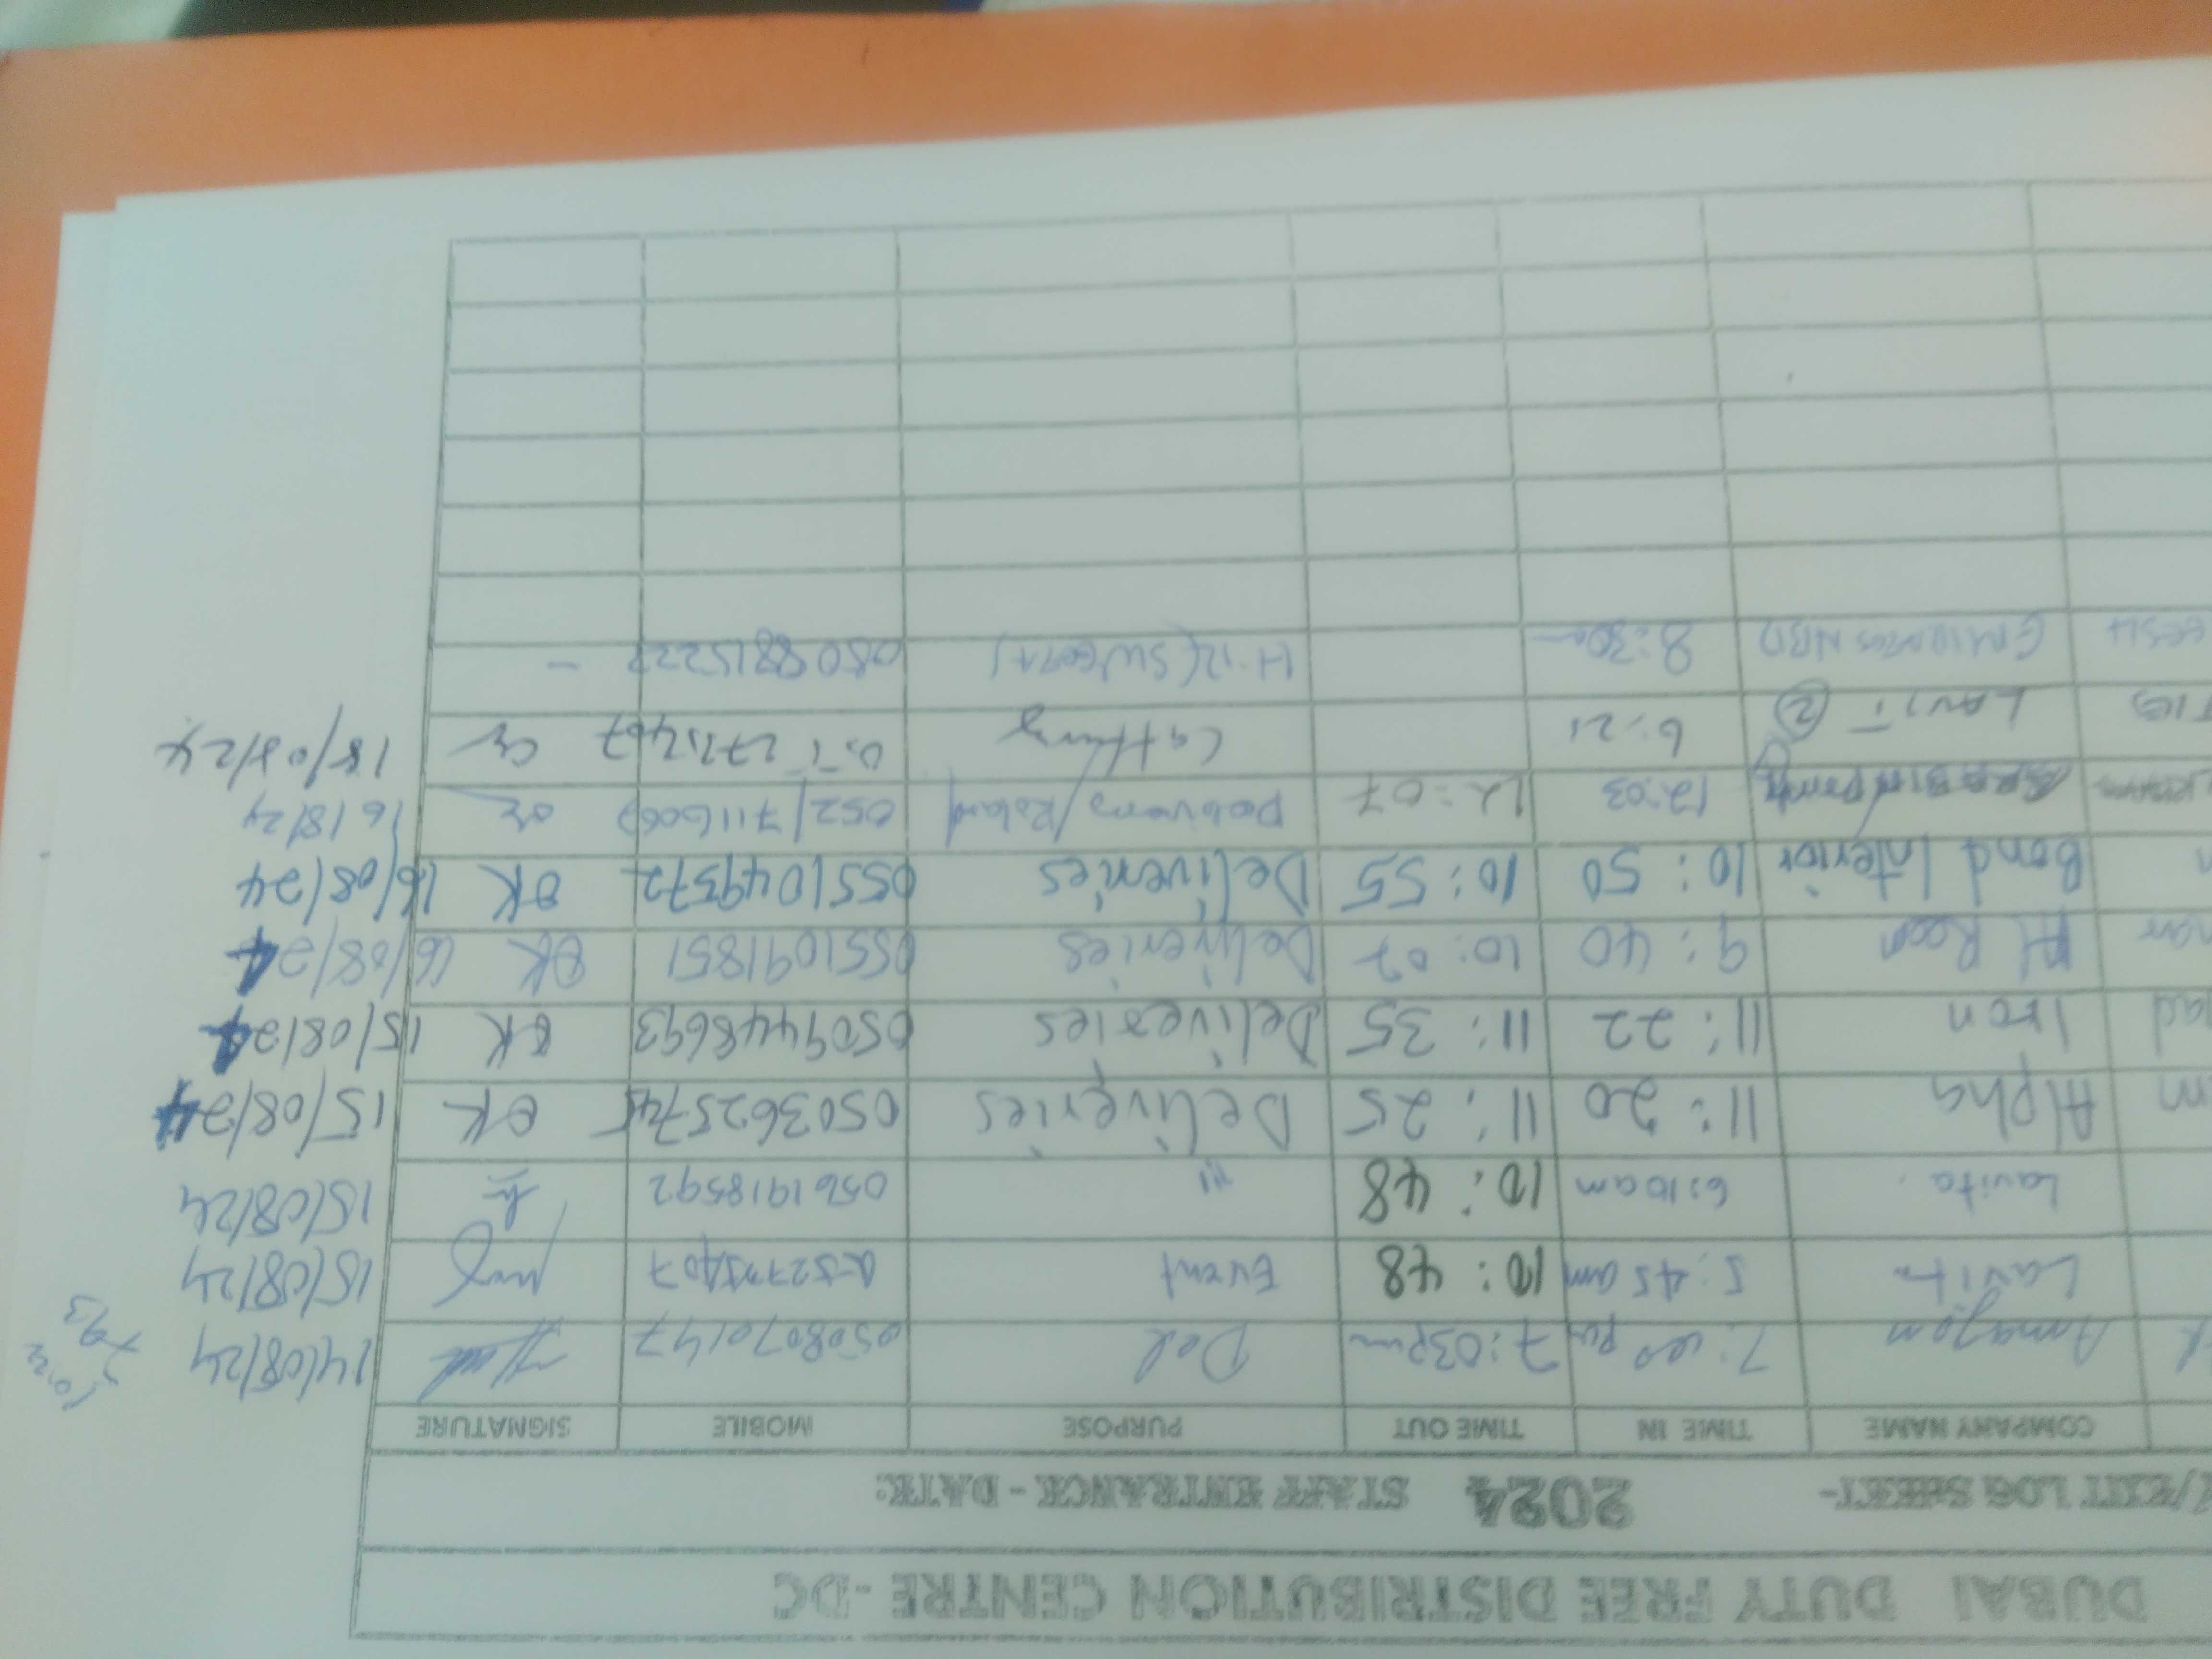 DUBAI DUTY FREE DISTRIBUTION CENTRE -DC
/EXIT LOG SHEET- 2024 STAFF ENTRANCE - DATE:
COMPANY NAME TIME IN TIME OUT PURPOSE MOBILE SIGNATURE
Amazon 7:00 pm 7:03pm Del 0508070147 14/08/24
Lavita 5:45am 10:48 Event 15/08/24
Lavita 6:10am 10:48 " 0561918592 15/08/24
m Alpha 11:20 11:25 Deliveries 0503625745 OK 15/08/24
ad Iron 11:22 11:35 Deliveries 0509448693 OK 15/08/24
Al Roon 9:40 10:07 Deliveries 0551091851 OK 16/08/24
Bond Interior 10:50 10:55 Deliveries 0551049572 OK 16/08/24
12:03 12:07 16/8/24
LAVIT (2) 6:21 18/08/24
EMIRATES NBD 8:30 0508815222 -